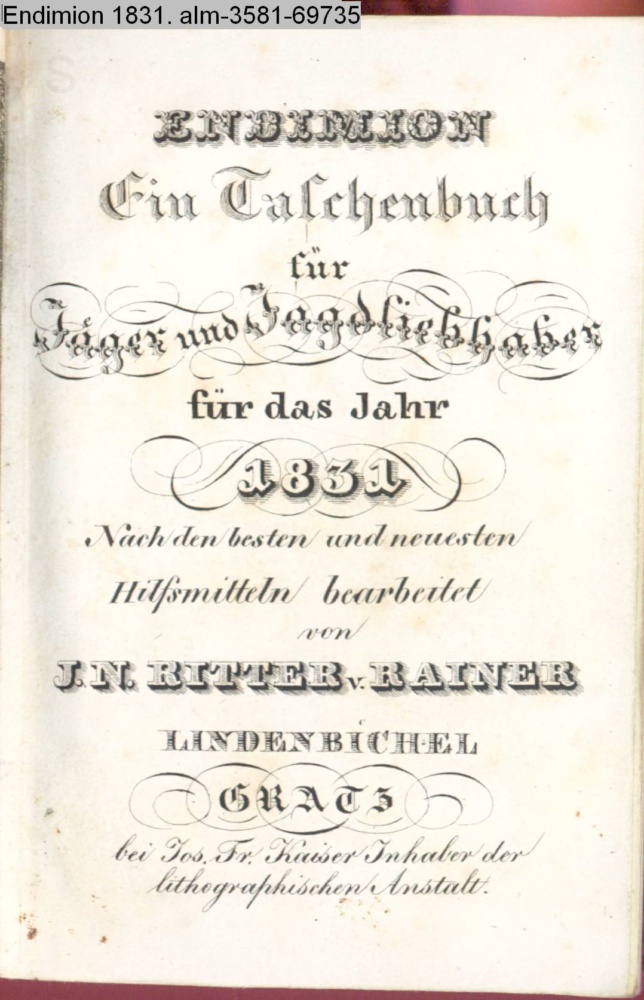 Endimion 1831. alm-3581-69735
ENDIMION
Ein Taschenbuch
für
Jäger und Jagdliebhaber
für das Jahr
1831
Nach den besten und neuesten
Hilfsmitteln bearbeitet
von
J. N. RITTER v. RAINER
LINDENBICHEL
GRATZ
bei Jos. Fr. Kaiser Inhaber der
lithographischen Anstalt.